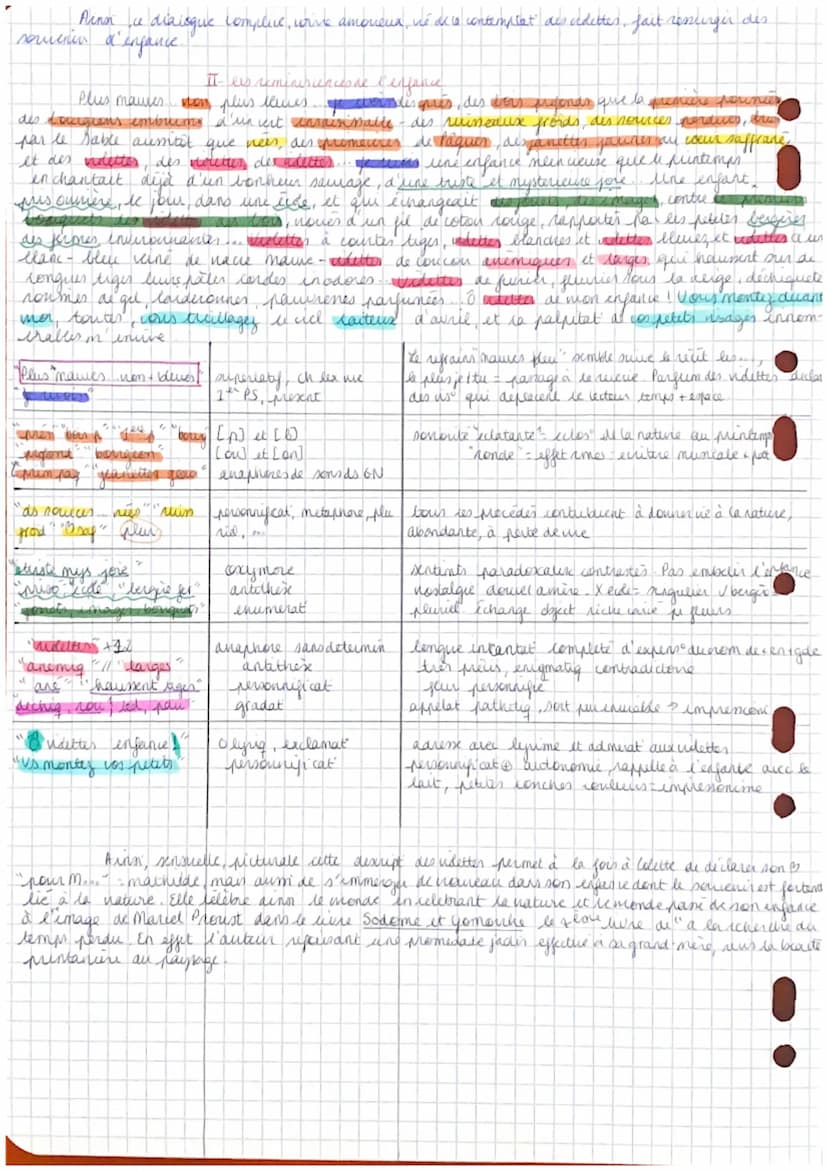 Ainsi, ce dialogue complice, voire amoureux, né de la contemplat° des violettes, fait ressurgir des
souvenirs d'enfance.
II- les réminiscences de l'enfance
Plus mauves... non, plus bleues... je revois des prés, des bois profonds que la première poussée
des bourgeons embrume d'un vert insaisissable - des ruisseaux froids, des sources perdues, bues
par le sable aussitôt que nées, des primevères de Pâques, des jeannettes jaunes au cœur safrané,
et des violettes, des violettes, des violettes... je revois une enfant silencieuse que le printemps
enchantait déjà d'un bonheur sauvage, d'une triste et mystérieuse joie... Une enfant
prisonnière, le jour, dans une école, et qui échangeait des jouets, des images, contre les premiers
bouquets de violettes des bois, noués d'un fil de coton rouge, rapportés par les petites bergères
des fermes environnantes... violettes à courtes tiges, violettes blanches et violettes bleues, et violettes d'un
blanc-bleu veiné de nacre mauve - violettes de coucou anémiques et larges, qui haussent sur de
longues tiges leurs pâles corolles inodores... violettes de février, fleuries sous la neige, déchiquetées
roussies de gel, laideronnes, pauvresses parfumées... Ô violettes de mon enfance ! Vous montez devant
moi, toutes, vous treillagez le ciel laiteux d'avril, et la palpitat° de vos petits visages innom-
brables m'enivre
"Plus mauves non + bleues"
"je revois"
superlatif, ch lex vue
1ère PS, présent
Le refrain "mauves bleu" semble suivre le récit
des vs° qui déplacent le lecteur temps + espace
"profond" "bourgeon"
[p] et [b]
[ou] et [on]
anaphores de sons ds GN
sonorité "éclatante" = éclos° de la nature au printemps
"ronde" = effet rimes - écriture musicale +
personnificat, métaphore,
tous ces procédés contribuent à donner vie à la nature,
abondante, à perte de vue
"triste mys joie"
oxymore
antithèse
énumérat°
sentimts paradoxaux contrastés. Pas embellir l'enfance
nostalgie douce amère.
pluriel. Échange object
"violettes" +12
"anémiq" // "larges"
"haussent tiges"
anaphore sans détermin
antithèse
personnificat°
gradat°
très précis, énigmatiq contradictoire
fleur personnifié
"Ô violettes enfance !"
"vs montez vos petits"
O lyriq, exclamat°
personnificat°
adresse avec lyrisme et admirat° aux violettes
personnificat° ⊕ autonomie, rappelle à l'enfance avec le
lait, petites touches couleurs = impressionisme
Ainsi, sensuelle, picturale cette descript° des violettes permet à la fois à Colette de déclarer son ♡
"pour M..." = mathilde, mais aussi de s'immerger de nouveau dans son enfance dont le souvenir est fortemt
lié à la nature. Elle célèbre ainsi le monde en célébrant la nature et le monde passé de son enfance
à l'image de Marcel Proust dans le livre Sodome et Gomorrhe le livre de "a la recherche du
temps perdu. En effet l'auteur une promenade jadis effectué sa grand-mère, la beauté
printanière du paysage.